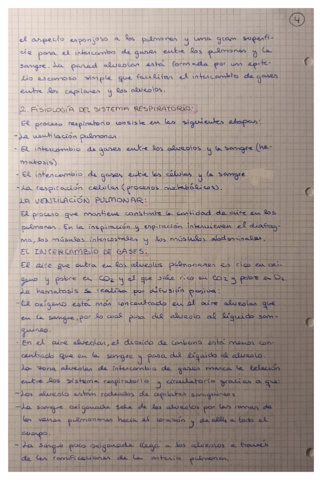 4
el aspecto esponjoso a los pulmones y una gran superfi-
cie para el intercambio de gases entre los pulmones y la
sangre. La pared alveolar está formada por un epite-
lio escamoso simple que facilita el intercambio de gases
entre los capilares y los alveolos.
2. FISIOLOGÍA DEL SISTEMA RESPIRATORIO:
El proceso respiratorio consiste en las siguientes etapas:
- La ventilación pulmonar
- El intercambio de gases entre los alveolos y la sangre (he-
matosis)
- El intercambio de gases entre las células y la sangre
- La respiración celular (procesos metabólicos).
LA VENTILACIÓN PULMONAR:
El proceso que mantiene constante la cantidad de aire en los
pulmones. En la inspiración y espiración intervienen el diafrag-
ma, los músculos intercostales y los músculos abdominales.
EL INTERCAMBIO DE GASES:
El aire que entra en los alveolos pulmonares es rico en oxí-
geno y pobre en CO2 y el que sale rico en CO2 y pobre en O2.
La hematosis se realiza por difusión pasiva:
- El oxígeno está más concentrado en el aire alveolar que
en la sangre, por lo cual pasa del alveolo al líquido san-
guíneo.
- En el aire alveolar, el dióxido de carbono está menos con-
centrado que en la sangre y pasa del líquido al alveolo.
La zona alveolar de intercambio de gases marca la relación
entre los sistema respiratorio y circulatorio gracias a que:
- Los alveolos están rodeados de capilares sanguíneos
- La sangre oxigenada sale de los alveolos por las ramas de
las venas pulmonares hacia el corazón y de allí a todo el
cuerpo.
- La sangre poco oxigenada llega a los alveolos a través
de las ramificaciones de la arteria pulmonar.